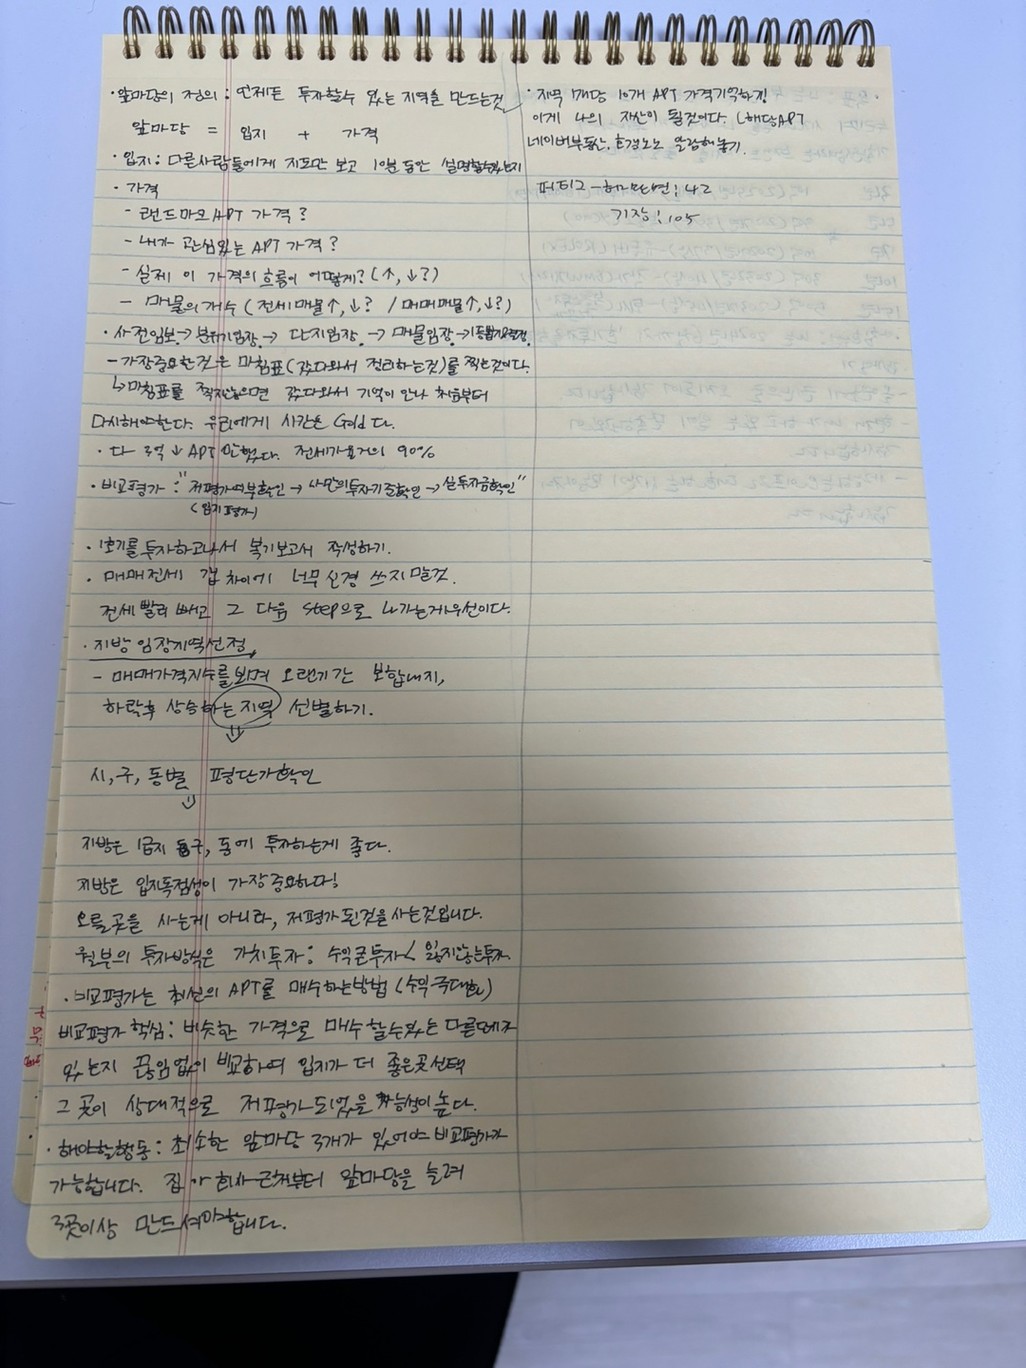 · 앞마당의 정의 : 언제든 투자할수 있는 지역을 만드는것
앞마당 = 입지 + 가격
· 입지 : 다른사람들에게 지도만 보고 10분 동안 설명할수있는지
· 가격
- 랜드마크 APT 가격?
- 내가 관심있는 APT 가격?
- 실제 이 가격의 흐름이 어떻게? (↑, ↓?)
- 매물의 개수 (전세매물↑, ↓? / 매매매물↑, ↓?)
· 사전임보 → 분위기임장 → 단지임장 → 매물임장 →
- 가장중요한것은 마침표 (갔다와서 정리하는것)를 찍는것이다.
↳ 마침표를 찍지않으면 갔다와서 기억이 안나 처음부터
다시해야한다. 우리에게 시간은 Gold 다.
· 다 3억 ↓ APT 만했다. 전세가율거의 90%
· 비교평가 : "저평가여부확인 → 나만의투자기준확인 → 실투자금확인"
(입지평가)
· 1호기를 투자하고나서 복기보고서 작성하기.
· 매매전세 갭 차이에 너무 신경 쓰지 말것.
전세 빨리 빼고 그 다음 step으로 나가는게우선이다.
· 지방 임장지역선정
- 매매가격지수를 보며 오랜기간 보합내지,
하락후 상승하는 지역 선별하기.
⇓
시, 구, 동별 평단가확인
⇓
지방은 1급지 구, 동에 투자하는게 좋다.
지방은 입지독점성이 가장중요하다!
오를곳을 사는게 아니라, 저평가 된것을 사는것입니다.
월부의 투자방식은 가치투자 : 수익군투자 < 잃지않는투자
· 비교평가는 최선의 APT를 매수하는방법 (수익극대화)
비교평가 핵심 : 비슷한 가격으로 매수 할수있는 다른단지
있는지 끊임없이 비교하여 입지가 더 좋은곳 선택
그 곳이 상대적으로 저평가되었을 가능성이 높다.
· 해야할행동 : 최소한 앞마당 3개가 있어야 비교평가가
가능합니다. 집 회사 근처부터 앞마당을 늘려
3곳이상 만드셔야합니다.
· 지역 1개당 10개 APT 가격기억하기!
이게 나의 자산이 될것이다. (해당 APT
네이버부동산, 호갱노노 알람해놓기.